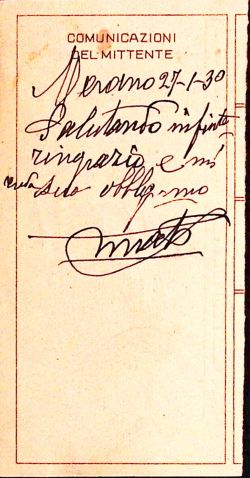 COMUNICAZIONI
DEL MITTENTE
Merano 27-1-30
Salutando infinite
ringrazio e mi
creda suo obblg.mo